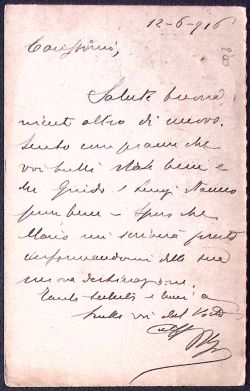 12-6-916
28
Carissimi,
Salute buona
nient altro di nuovo.
Sento con piacere che
voi tutti state bene e
che Guido e Luigi stanno
pure bene - Spero che
Mario mi scriverà presto
informandomi della sua
nuova destinazione.
Tanti saluti e baci a
tutti voi dal Vostro